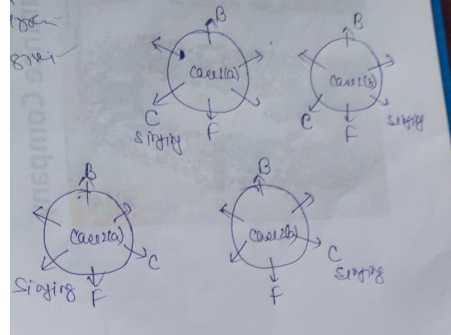 B
Case1(a)
C
Singing
F
B
Case1(b)
C
F
Singing
B
Case2(a)
C
Singing
F
B
Case2(b)
C
Singing
F